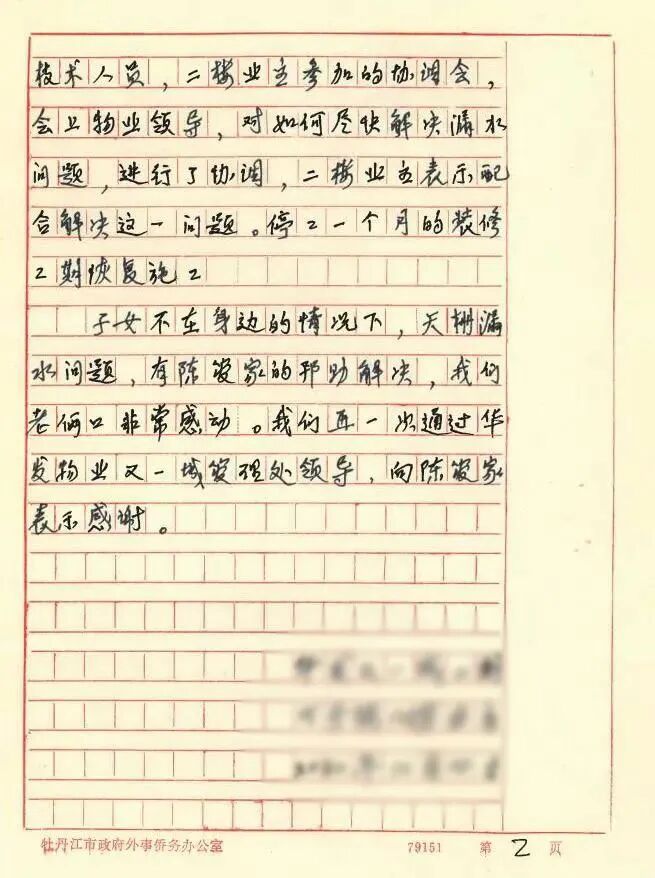 技术人员，二楼业主参加的协调会，
会上物业领导，对如何尽快解决漏水
问题，进行了协调，二楼业主表示配
合解决这一问题。停工一个月的装修
工期恢复施工
子女不在身边的情况下，天棚漏
水问题，有陈管家的帮助解决，我们
老俩口非常感动。我们再一次通过华
发物业又一城管理处领导，向陈管家
表示感谢。
牡丹江市政府外事侨务办公室 79151 第 2 页